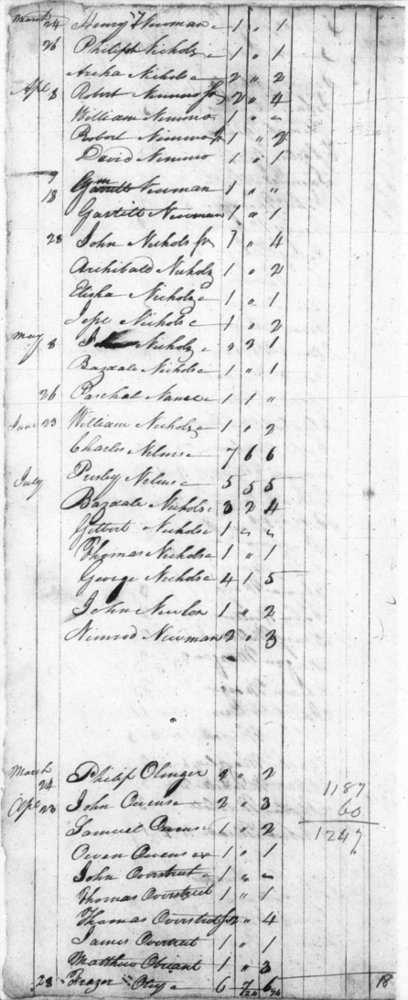 March 24 Henry Newman 1 " 1
26 Philip Nichols 1 " 1
Archa Nichols 2 " 2
Apl 8 Robert Nimmo 2 " 4
William Nimmo 1 " "
Robert Nimmo 1 " 2
David Nimmo 1 " 1
9 Newman 1 " "
18 Garrett Newman 1 " 1
28 John Nichols 7 " 4
Archibald Nichols 1 " 2
Elisha Nichols 1 " 1
Jese Nichols 1 " 2
May 8 Nichols " 2 1
Barxale Nichols 1 " 1
26 Paschal Nance 1 1 "
June 23 William Nichols 1 " 2
Charles Nelms 7 6 6
July Presley Nelms 5 5 5
Barxale Nichols 3 2 4
Gilbert Nichols 1 " "
Thomas Nichols 1 " 1
George Nichols 4 1 5
John Newlon 1 " 2
Nimrod Newman 2 " 3
"
March 24 Philip Olinger 2 " 2
Apl 23 John Owens 2 " 3
Samuel Owens 1 " 2
Owen Owens 1 " 1
John Overstreet 1 " "
Thomas Overstreet 1 " 1
Thomas Overstreet 2 " 4
James Overtret 1 " 1
Matthew Obriant 1 " 3
28 6 7 6 18
1187
60
1247